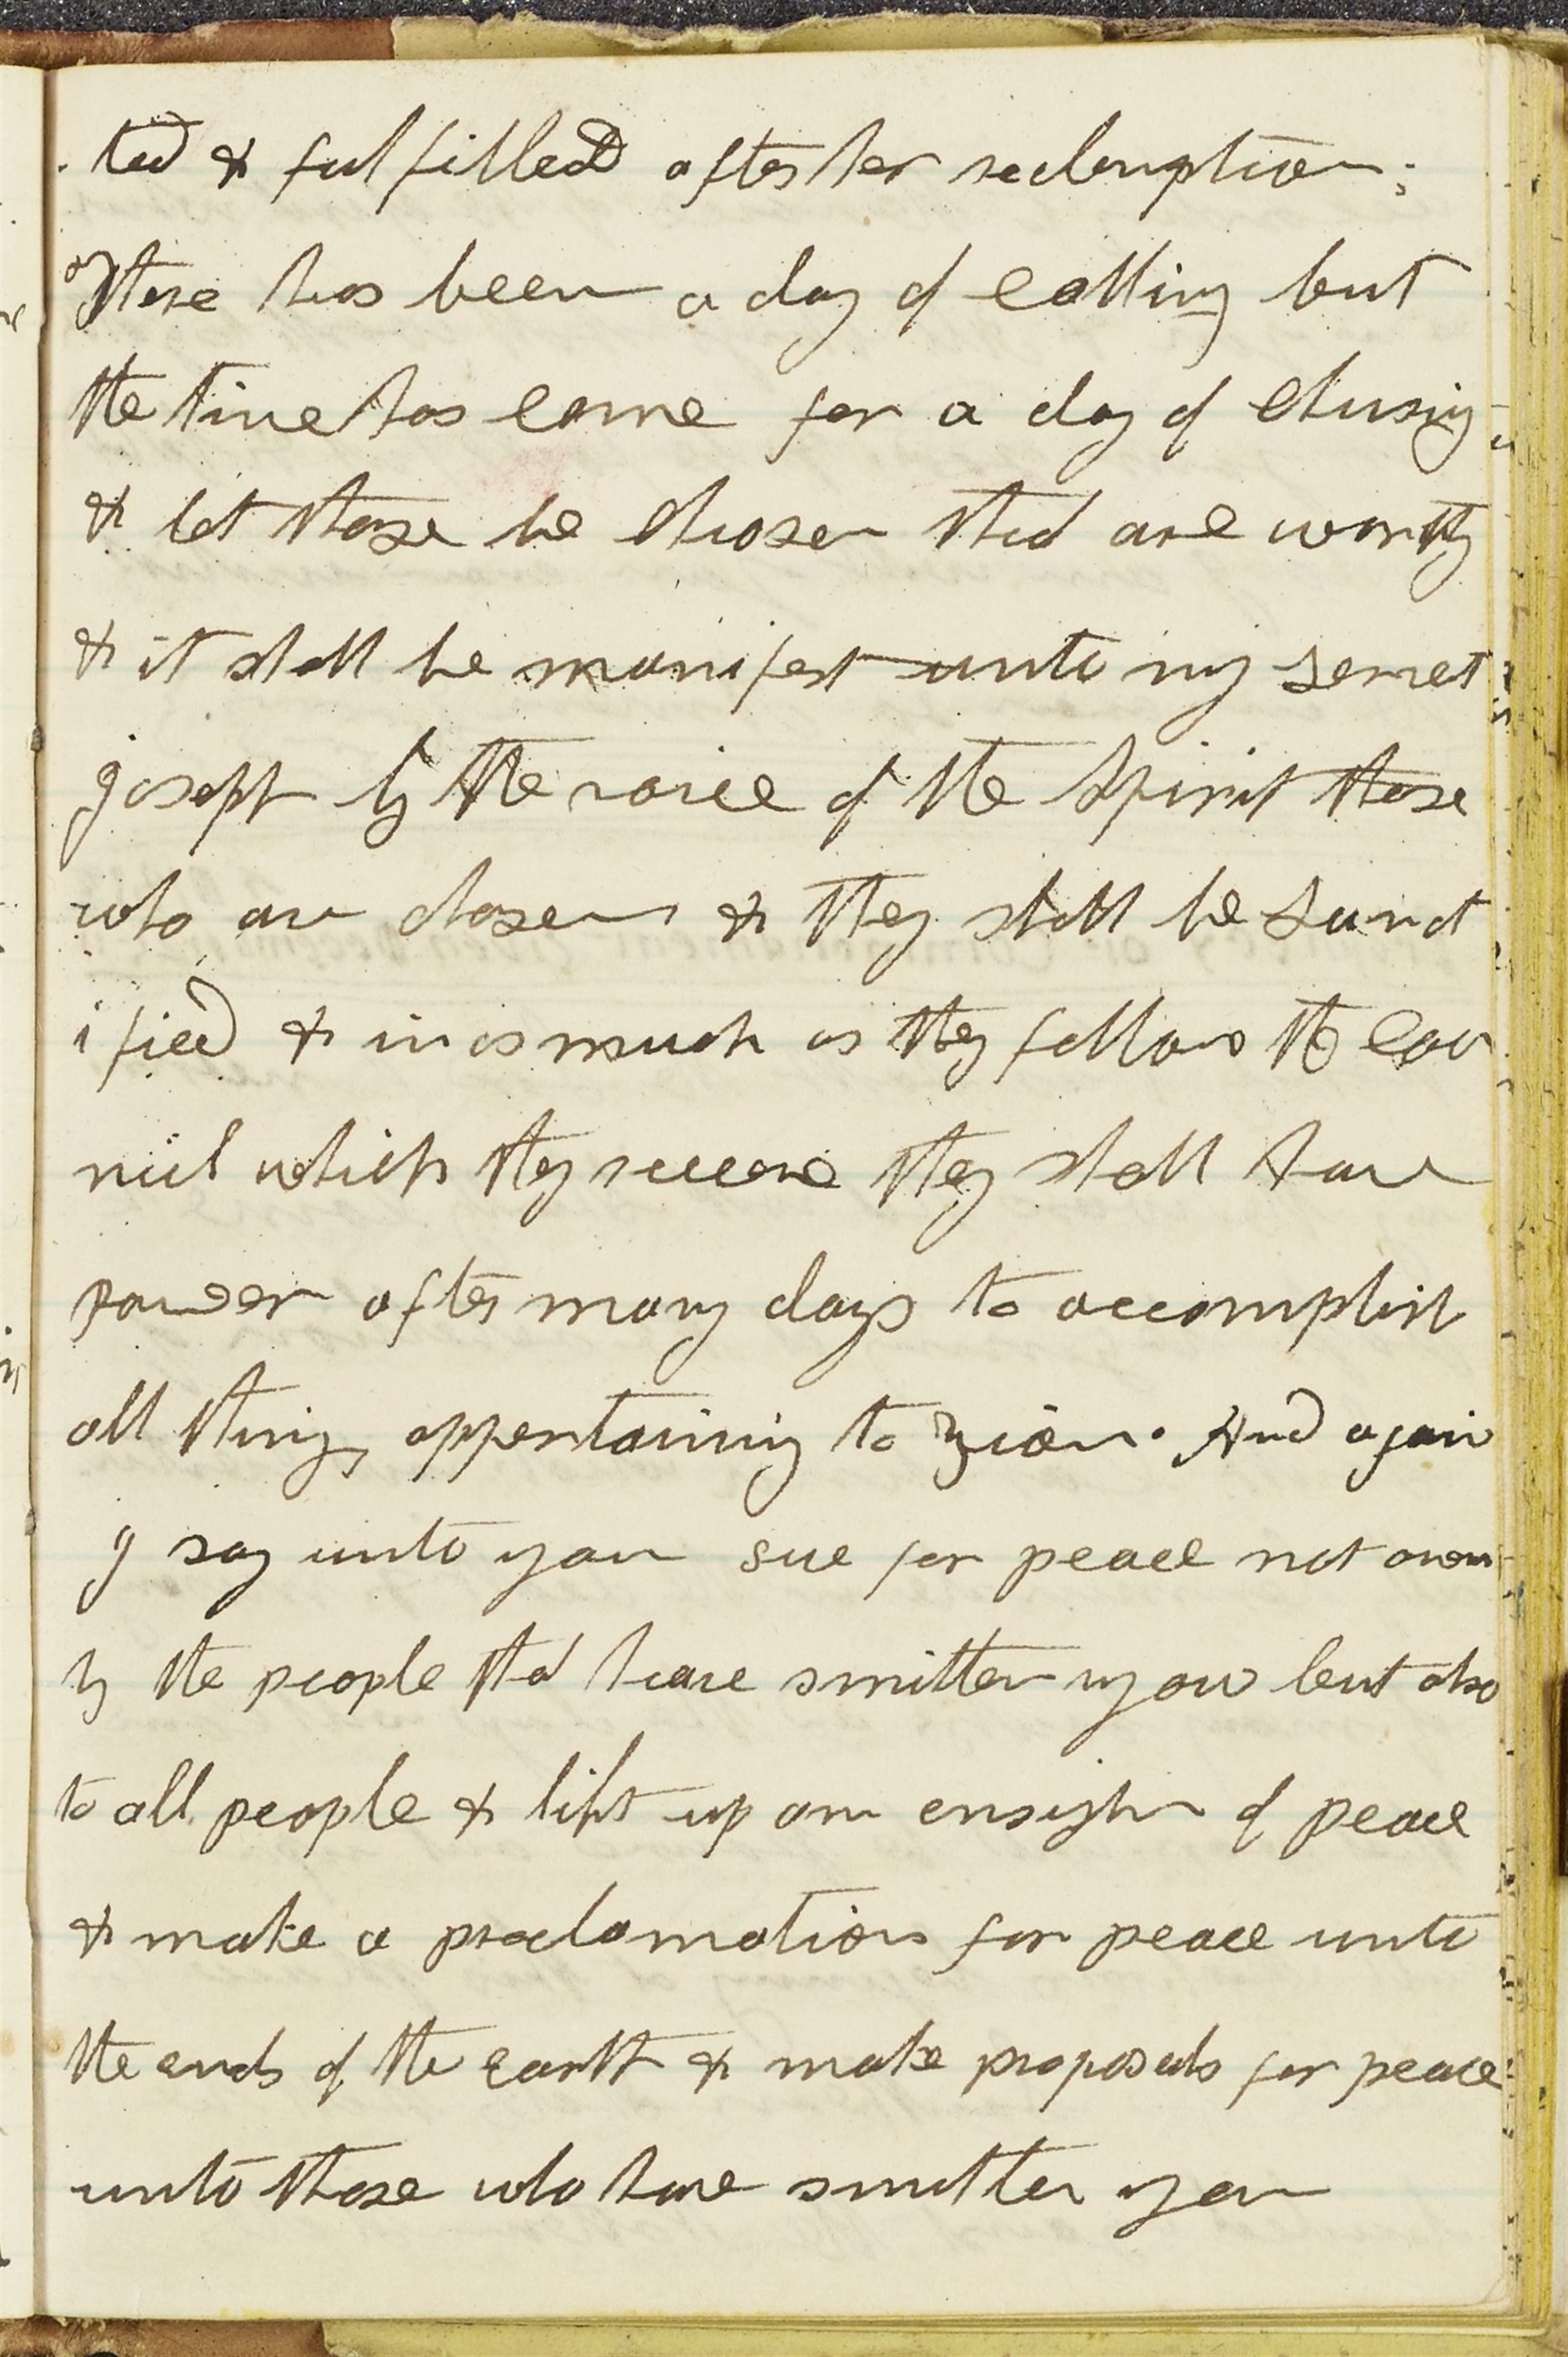 ted & fulfilled after her redemption;
There has been a day of calling but
the time has come for a day of chusing
& let those be chosen that are worthy
& it shall be manifest unto my servet
joseph by the voice of the Spirit those
who are chosen & they shall be Sanct
ified & inasmuch as they follow the cou
ncil which they receeve they shall have
power after many days to accomplish
all things appertaining to zion. And again
I say unto you sue for peace not only
by the people that have smitten you but also
to all people & lift up an ensighn of peace
& make a proclamation for peace unto
the ends of the earth & make proposals for peace
unto those who have smitten you